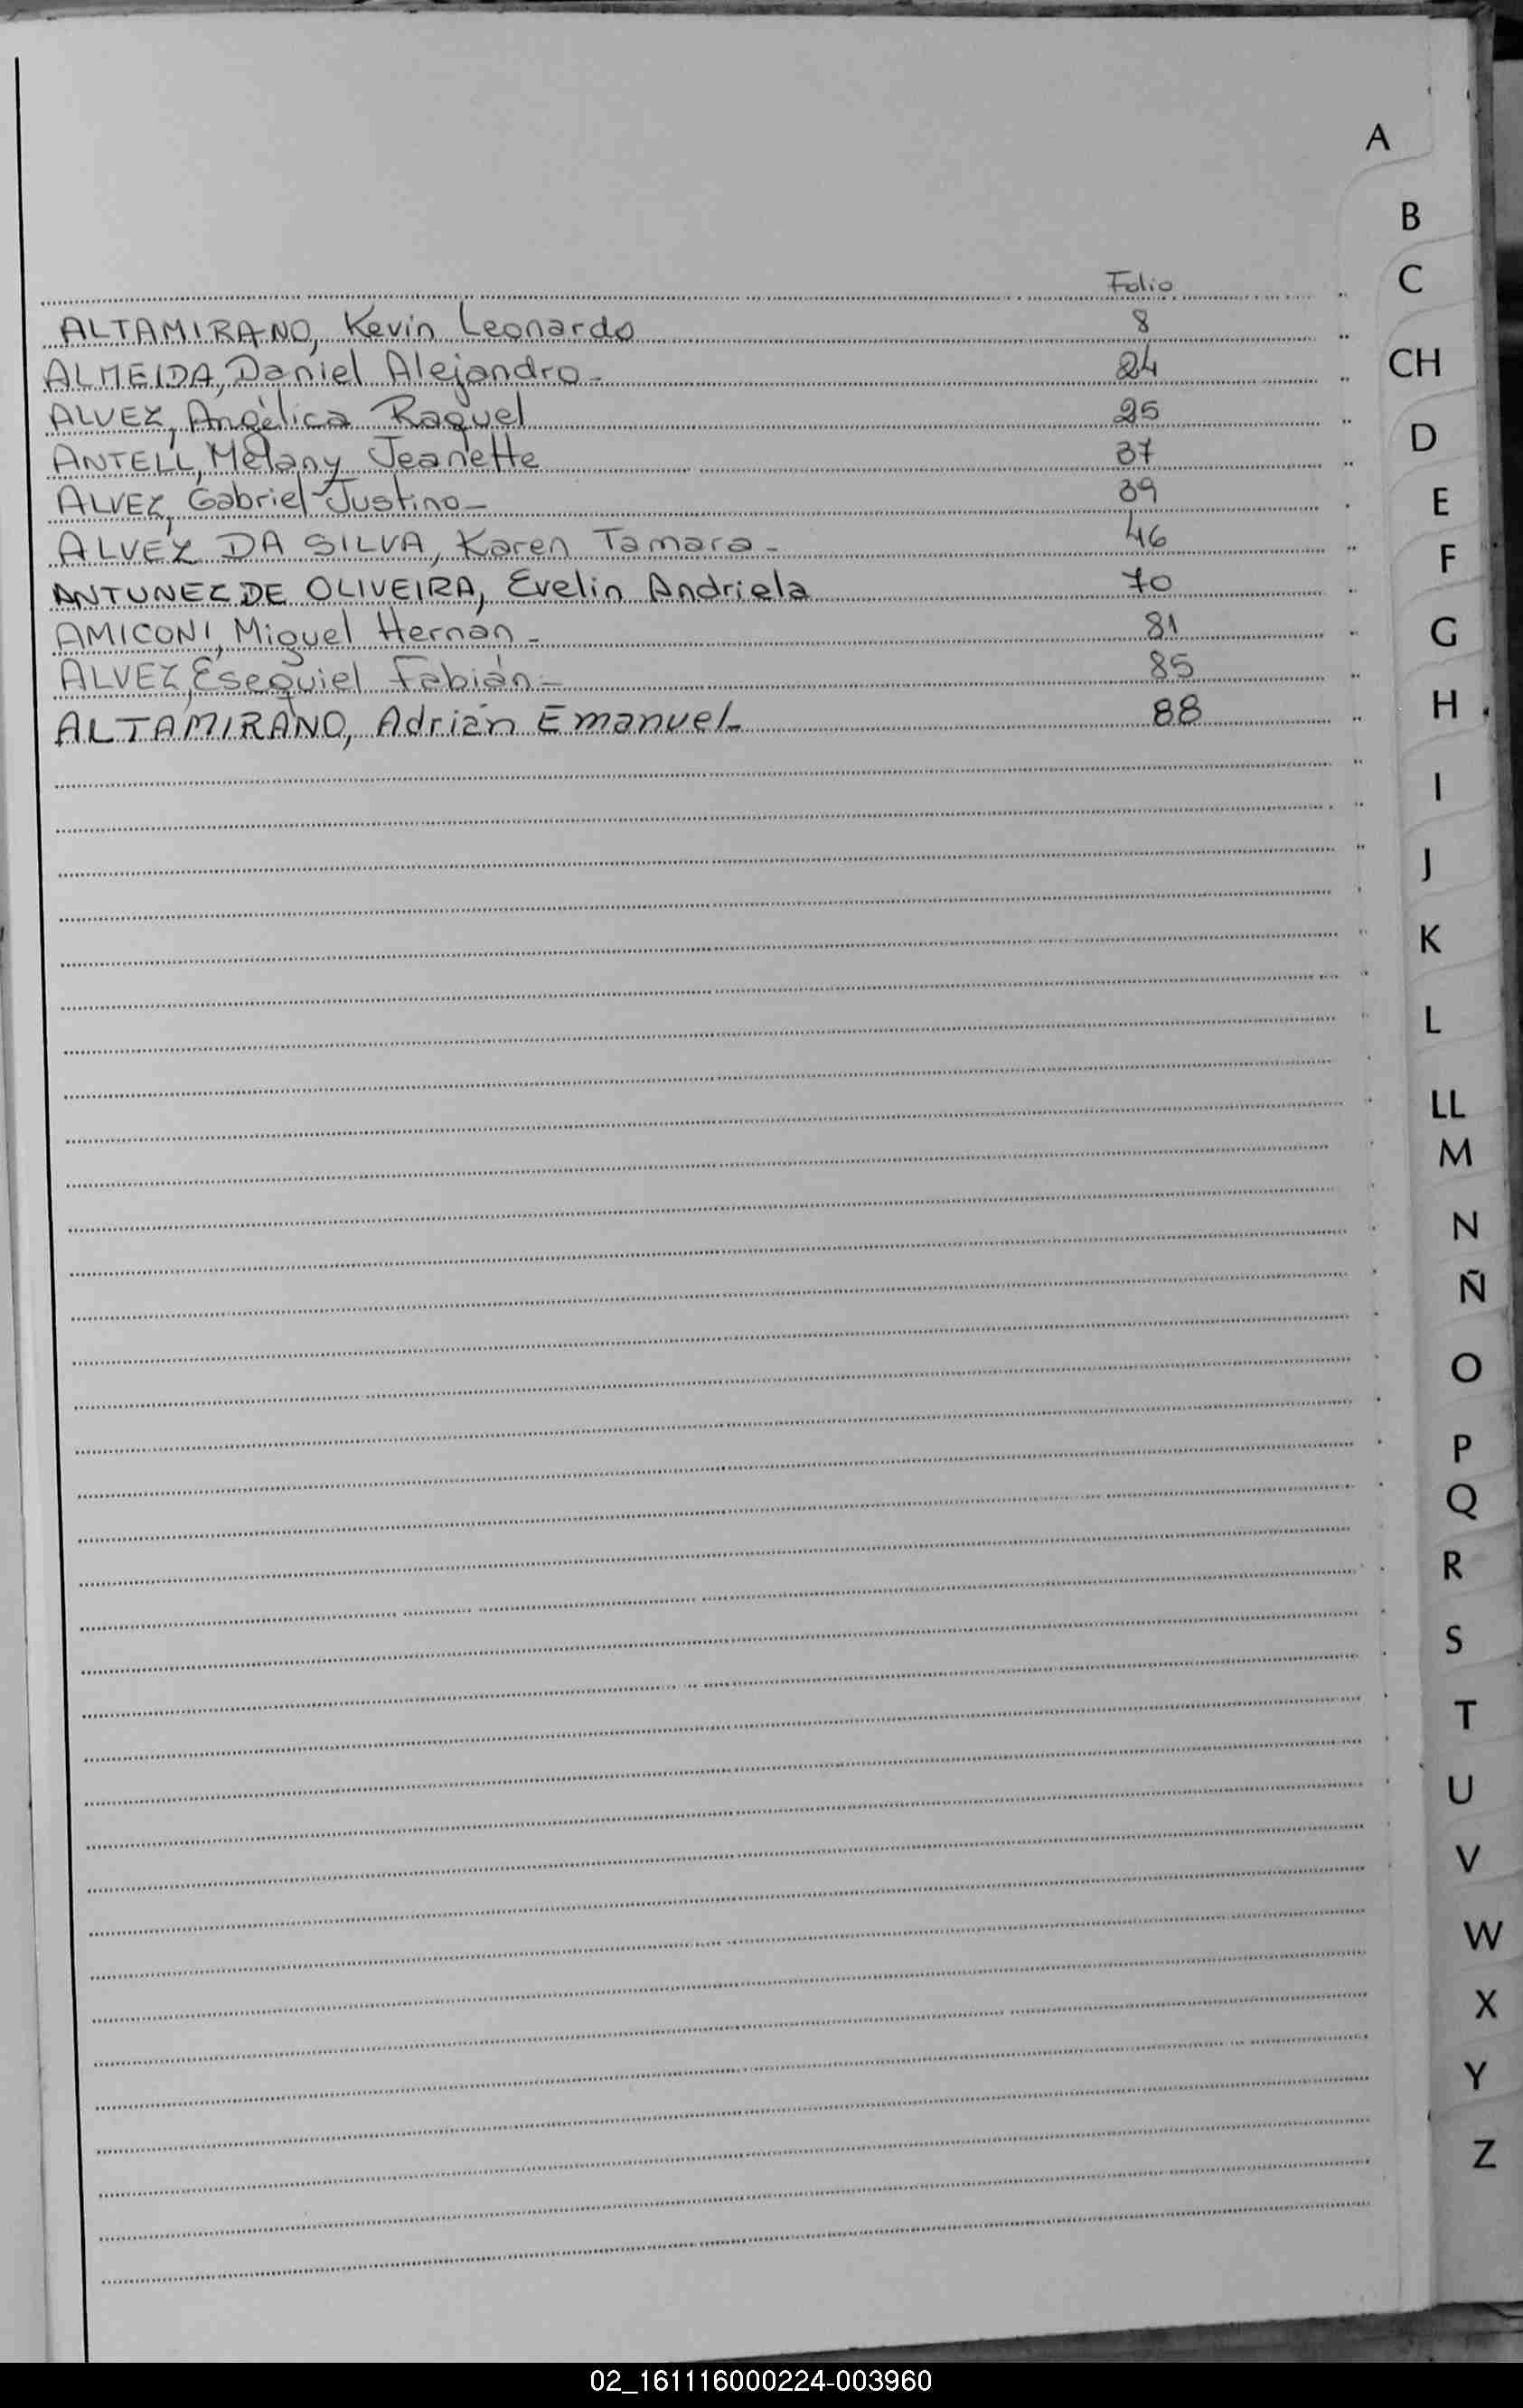 Folio
ALTAMIRANO, Kevin Leonardo 8
ALMEIDA, Daniel Alejandro - 24
ALVEZ, Angélica Raquel 25
ANTELL, Melany Jeanette 37
ALVEZ, Gabriel Justino - 39
ALVEZ DA SILVA, Karen Tamara - 46
ANTUNEZ DE OLIVEIRA, Evelin Andriela 70
AMICONI, Miguel Hernán - 81
ALVEZ, Esequiel Fabián - 85
ALTAMIRANO, Adrián Emanuel - 88
A
B
C
CH
D
E
F
G
H
I
J
K
L
LL
M
N
Ñ
O
P
Q
R
S
T
U
V
W
X
Y
Z
02_161116000224-003960